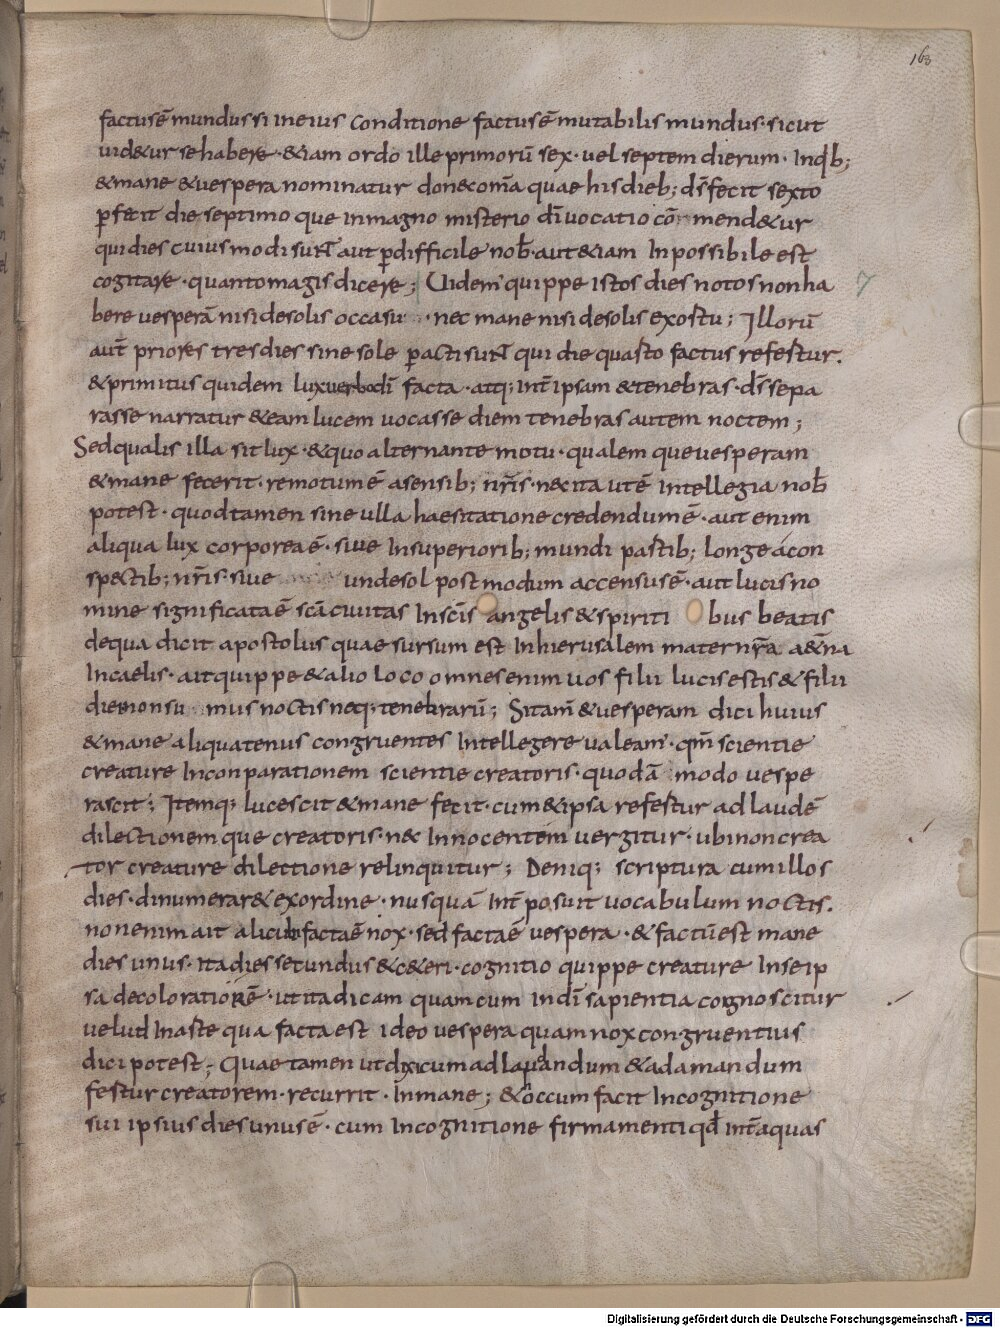 163
factus ē mundus si in eius conditione factus ē mutabilis mundus· sicut
uid&ur se habere· &iam ordo ille primorū sex· uel septem dierum· In q̇b;
& mane & uespera nominatur donec om̄a quae his dieb; d̄s fecit sexto
ꝑfecit die septimo que in magno misterio d̄i uocatio com mend&ur
qui dies cuius modi sunt aut ꝑdifficile nob̄· aut &iam Inpossibile est
cogitare· quanto magis dicere; Uidem' quippe istos dies notos non ha
bere uesperā nisi de solis occasu · nec mane nisi de solis exortu; Illorū
aut̄ priores tres dies sine sole ꝑacti sunt qui die quarto factus refertur.
& primitus quidem lux uerbo d̄i facta· atq; int̄ ipsam & tenebras· d̄s sepa
rasse narratur & eam lucem uocasse diem tenebras autem noctem;
Sed qualis illa sit lux· & quo alternante motu· qualem que uesperam
& mane fecerit· remotum ē a sensib; n̄ris· nec ita ut ē intellegi a nob̄
potest· quod tamen sine ulla haesitatione credendum ē· aut enim
aliqua lux corporea ē· siue In superiorib; mundi partib; longe a con
spectib; n̄ris· siue undesol post modum accensus ē· aut lucis no
mine significata ē sc̄a ciuitas In sc̄is angelis & spiriti bus beatis
de qua dicit apostolus quae sursum est Inhierusalem mater n̄ra a&̄na
In caelis· ait quippe & alio loco omnes enim uos filii lucis estis & filii
diei non su mus noctis neq; tenebrarū; Si tam̄ & uesperam diei huius
& mane aliquatenus congruentes Intellegere ualeam'· qm̄ scientie
creature In conparationem scientie creatoris· quodā modo uespe
rascit; Itemq; lucescit & mane fecit· cum & ipsa refertur ad laudē
dilectionem que creatoris· nec In noctem uergitur· ubi non crea
tor creature dilectione relinquitur; Deniq; scriptura cum illos
dies· dinumerar& ex ordine· nusquā Int̄posuit uocabulum noctis.
non enim ait alicubi facta ē nox· sed facta ē uespera· & factū est mane
dies unus· ita dies secundus & c&eri· cognitio quippe creature In se ip
sa decoloratior ē· ut ita dicam quam cum in d̄i sapientia cognoscitur
uelud In arte qua facta est ideo uespera quam nox congruentius
dici potest; Quae tamen ut dixi cum ad laudandum & ad amandum
fertur creatorem· recurrit· In mane; & hoc cum facit In cognitione
sui ipsius dies unus ē· cum In cognitione firmamenti qd̄ int̄ aquas
7
Digitalisierung gefördert durch die Deutsche Forschungsgemeinschaft - DFG